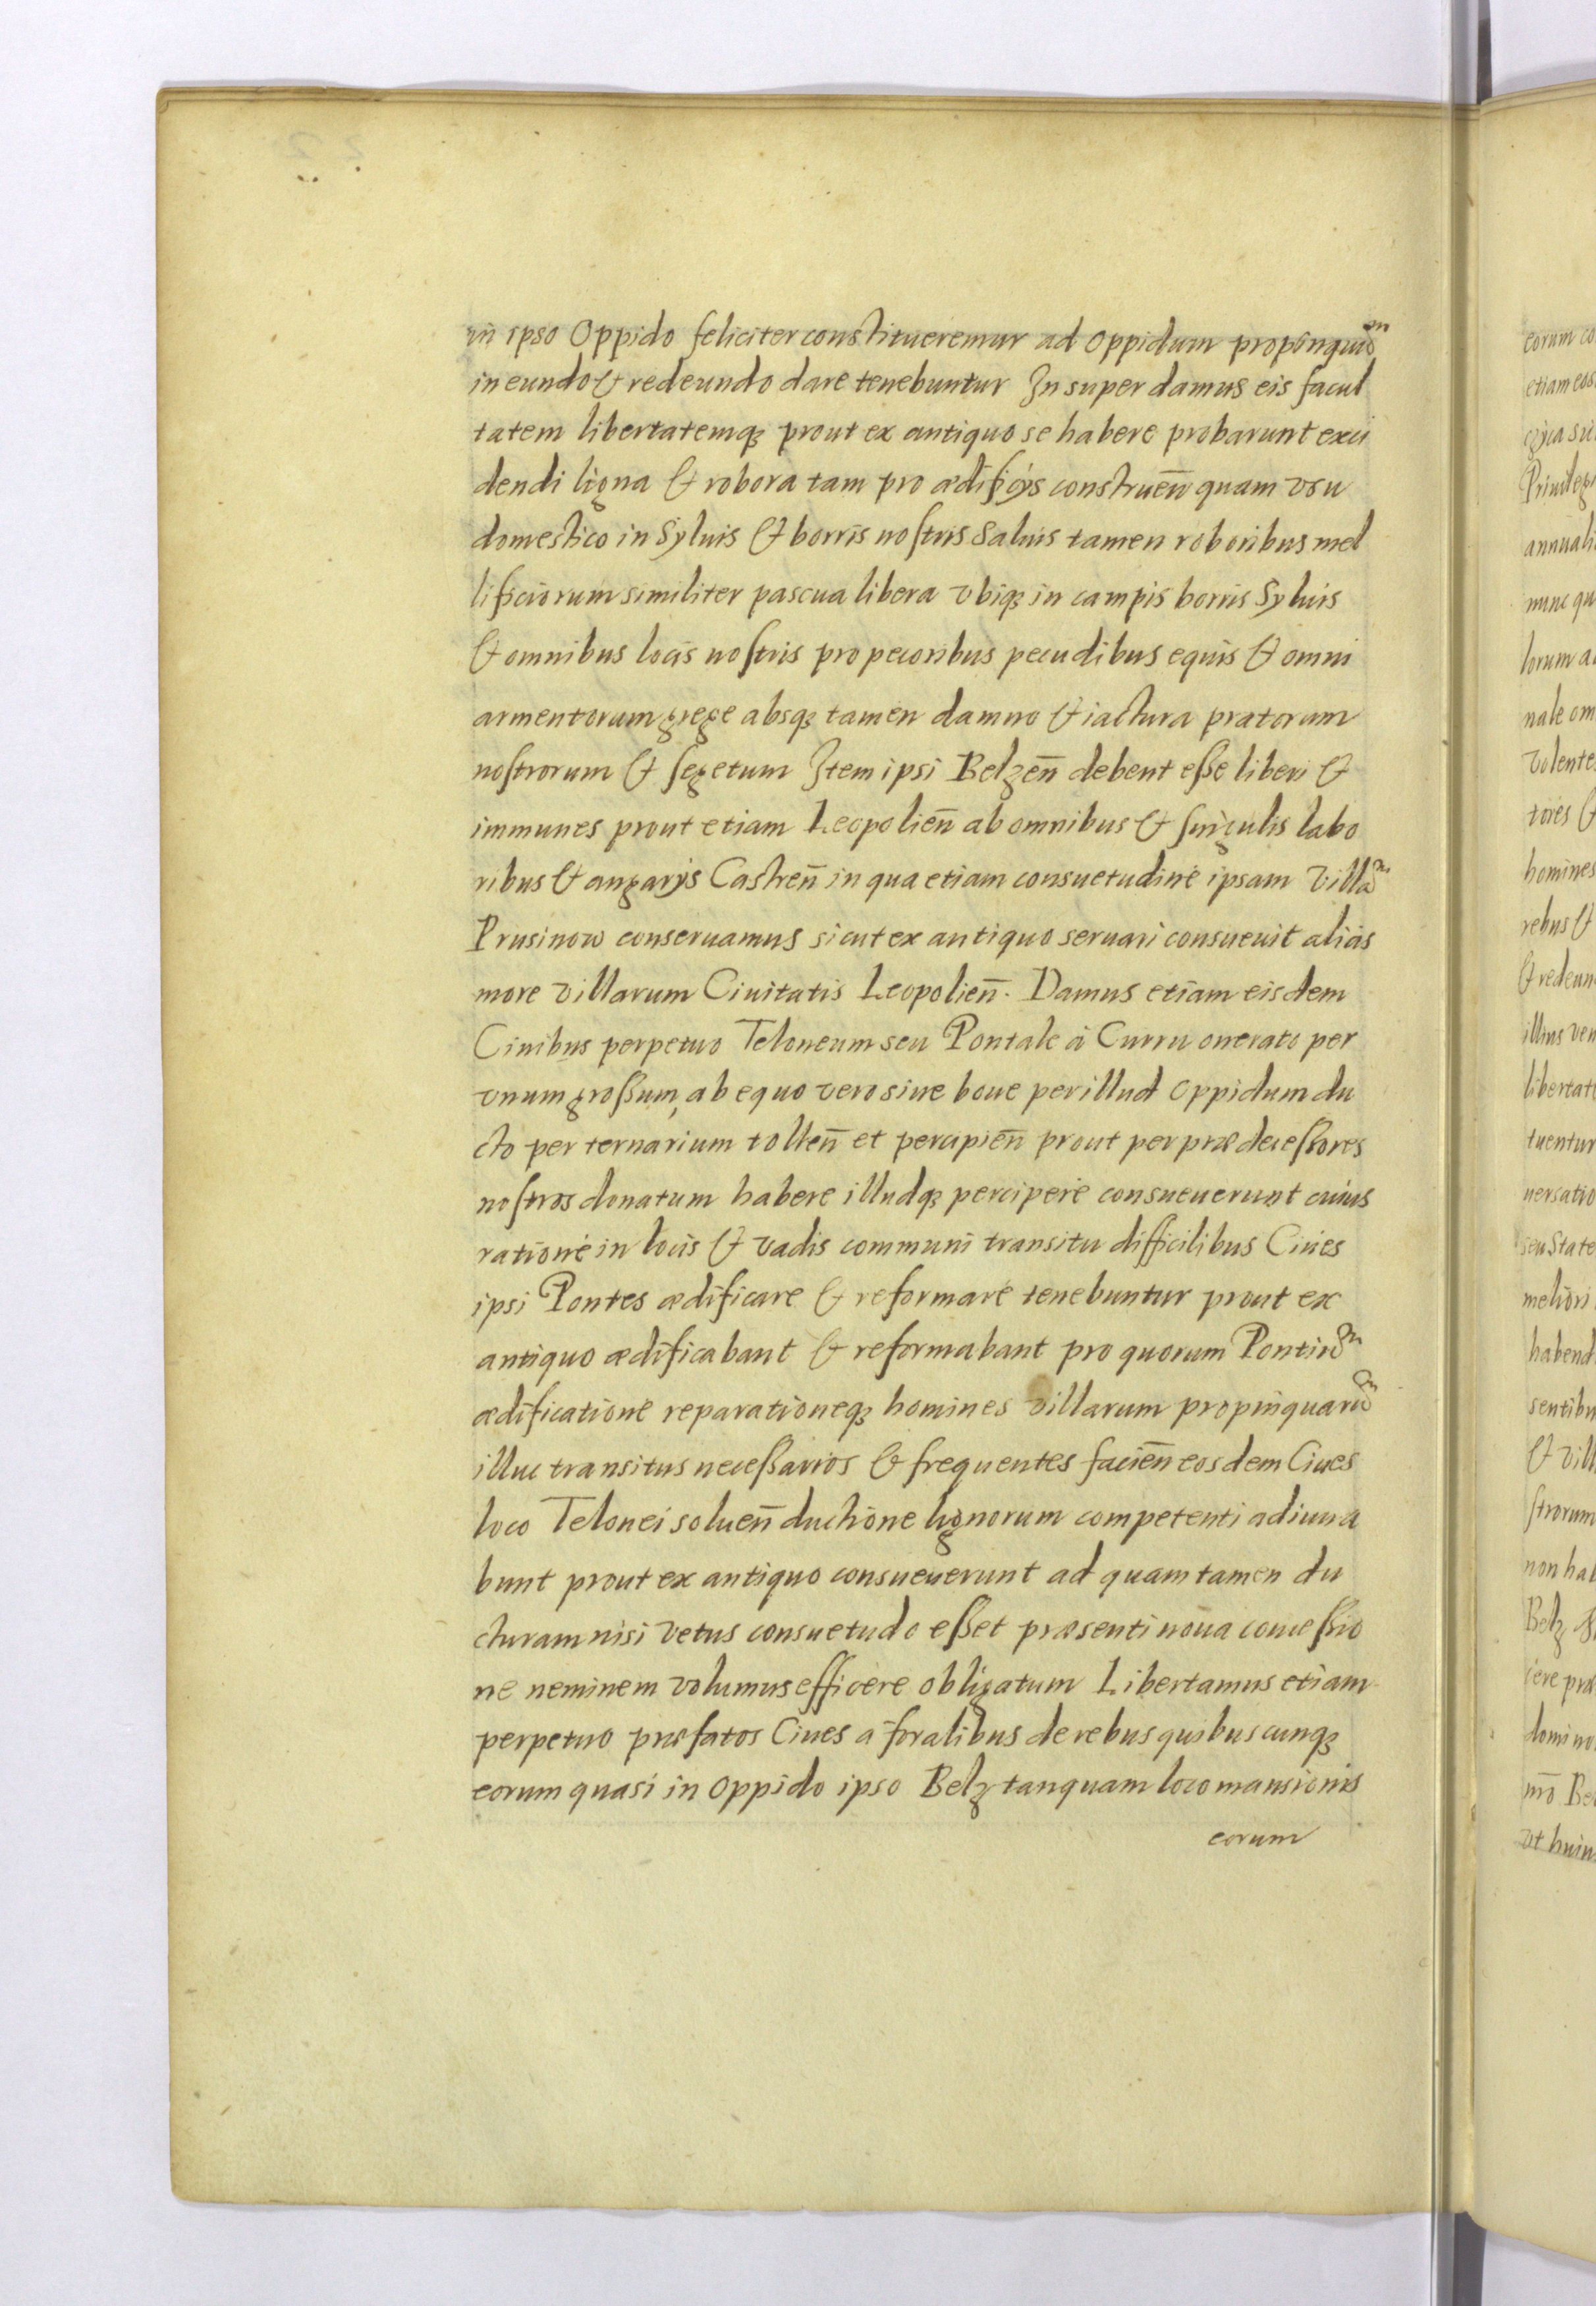 in ipso Oppido feliciter constitueremur ad oppidum propinquũ
in eundo & redeundo dare tenebuntur In super damus eis facul
tatem libertatemq3 prout ex antiquo se habere probarunt exci
dendi ligna & robora tam pro ædificijs construeñ quam vsu
domestico in Syluis & borris nostris Saluis tamen roboribus mel
lificiorum similiter pascua libera vbiq3 in campis borris Syluis
& omnibus locis nostris pro pecoribus pecudibus equis & omni
armentorum grege absq3 tamen damno & iactura pratorum
nostrorum & segetum Item ipsi Belzeñ debent esse liberi &
immunes prout etiam Leopolieñ ab omnibus & singulis labo
ribus & angarijs Castreñ in qua etiam consuetudine ipsam villã
Prusinow conseruamus sicut ex antiquo seruari consueuit alias
more villarum Ciuitatis Leopolieñ. Damus etiam eisdem
Ciuibus perpetuo Teloneum seu Pontale à Curru onerato per
vnum grossum, ab equo vero siue boue per illud oppidum du
cto per ternarium tolleñ et percipieñ prout per prædecessores
nostros donatum habere illudq3 percipere consueuerunt cuius
ratione in locis & vadis communi transitu difficilibus Ciues
ipsi Pontes ædificare & reformare tenebuntur prout ex
antiquo ædificabant & reformabant pro quorum Pontiũ
ædificatione reparationeq3 homines villarum propinquarũ
illuc transitus necessarios & frequentes facieñ eosdem Ciues
loco Telonei solueñ ductione lignorum competenti adiuua
bunt prout ex antiquo consueuerunt ad quam tamen du
cturam nisi vetus consuetudo esset præsenti noua concessio
ne neminem volumus efficere obligatum Libertamus etiam
perpetuo præfatos Ciues a foralibus de rebus quibuscunq3
eorum quasi in oppido ipso Belz tanquam loco mansionis
eorum